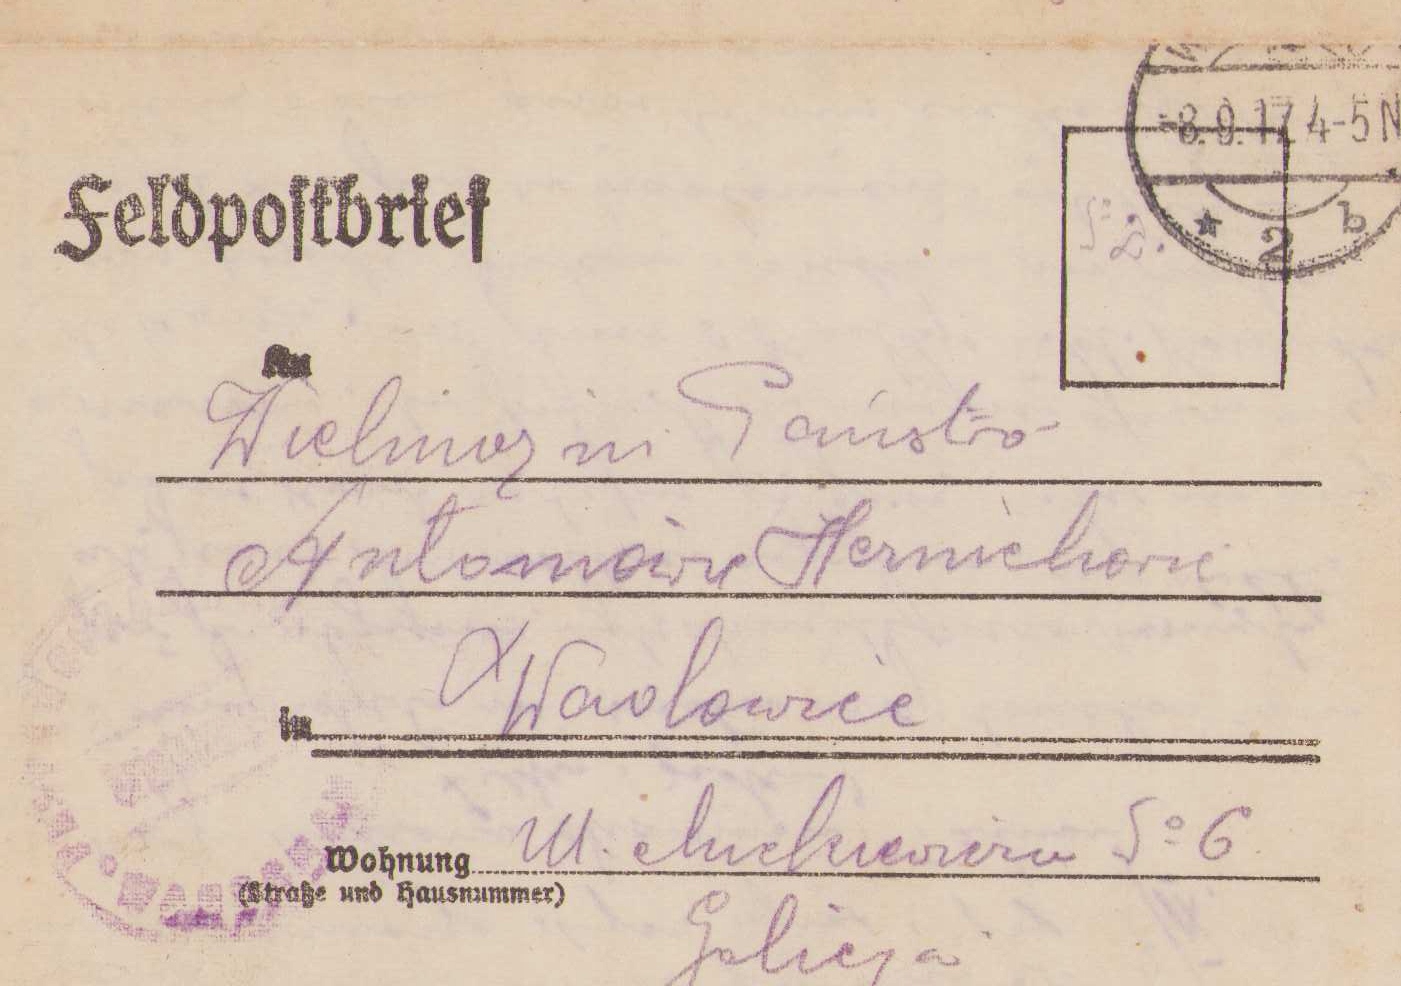 -8.9.17.4-5N
* 2 b
Feldpostbrief
№ 2.
An
Wielmożni Państwo
Antoniowie Hernichowie
in Wadowice
Wohnung Ul. Mickiewicza № 6
(Straße und Hausnummer)
Galicja